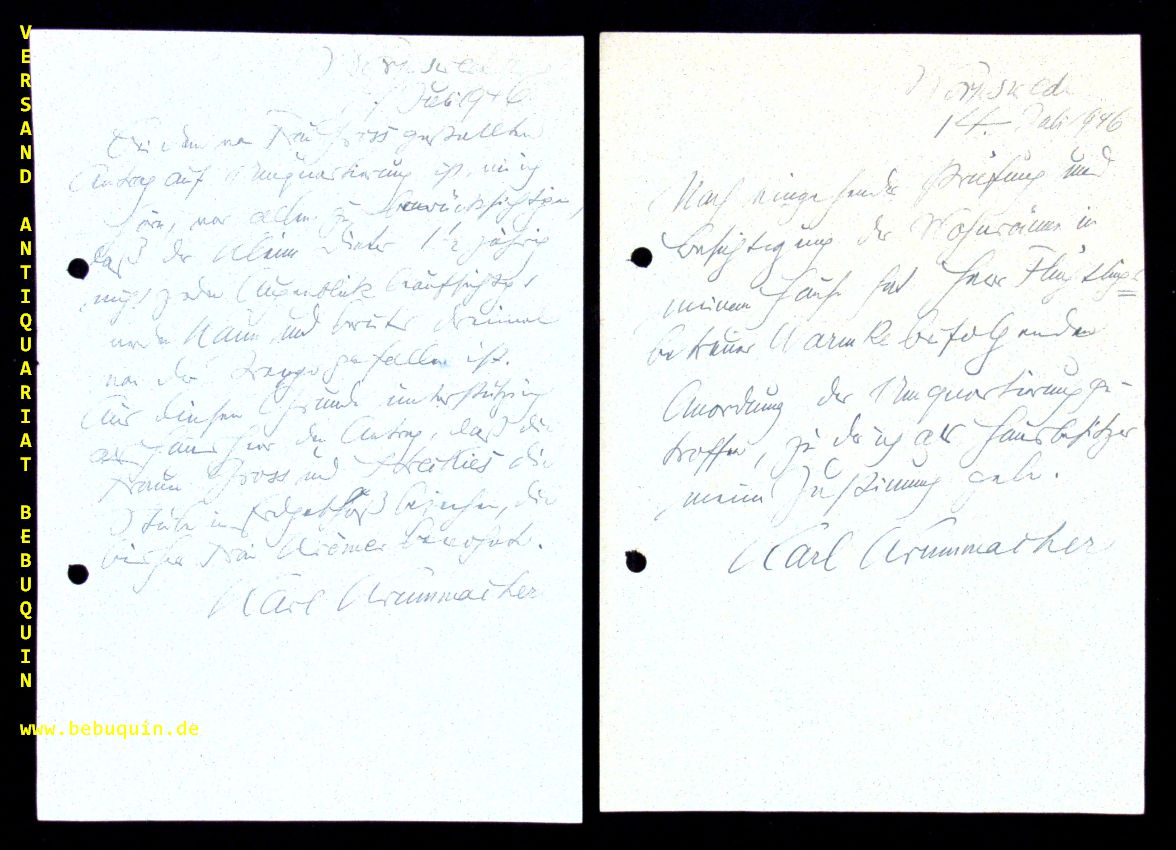 VERSAND ANTIQUARIAT BEBUQUIN
www.bebuquin.de
Worpswede
Juli 1946
Bei dem von Frau Gross gestellten
Antrag auf Umquartierung ist
vor allem zu berücksichtigen,
daß der kleine Dieter 1½ jährig
nicht jeden Augenblick beaufsichtigt
werden kann und bereits dreimal
von der Treppe gefallen ist.
Aus diesem Grunde unterstütze ich
als Hausherr den Antrag, daß die
Frauen Gross und die
Stube im Erdgeschoß beziehen, die
bisher Frau Krämer bewohnt.
Karl Krummacher
Worpswede
14. Juli 1946
Nach eingehender Prüfung und
Besichtigung der Wohnräume in
meinem Hause hat Herr Flüchtlings-
betreuer Warnke folgenden
Anordnung der Umquartierung ge-
troffen, zu der ich als Hausbesitzer
meine Zustimmung gebe.
Karl Krummacher